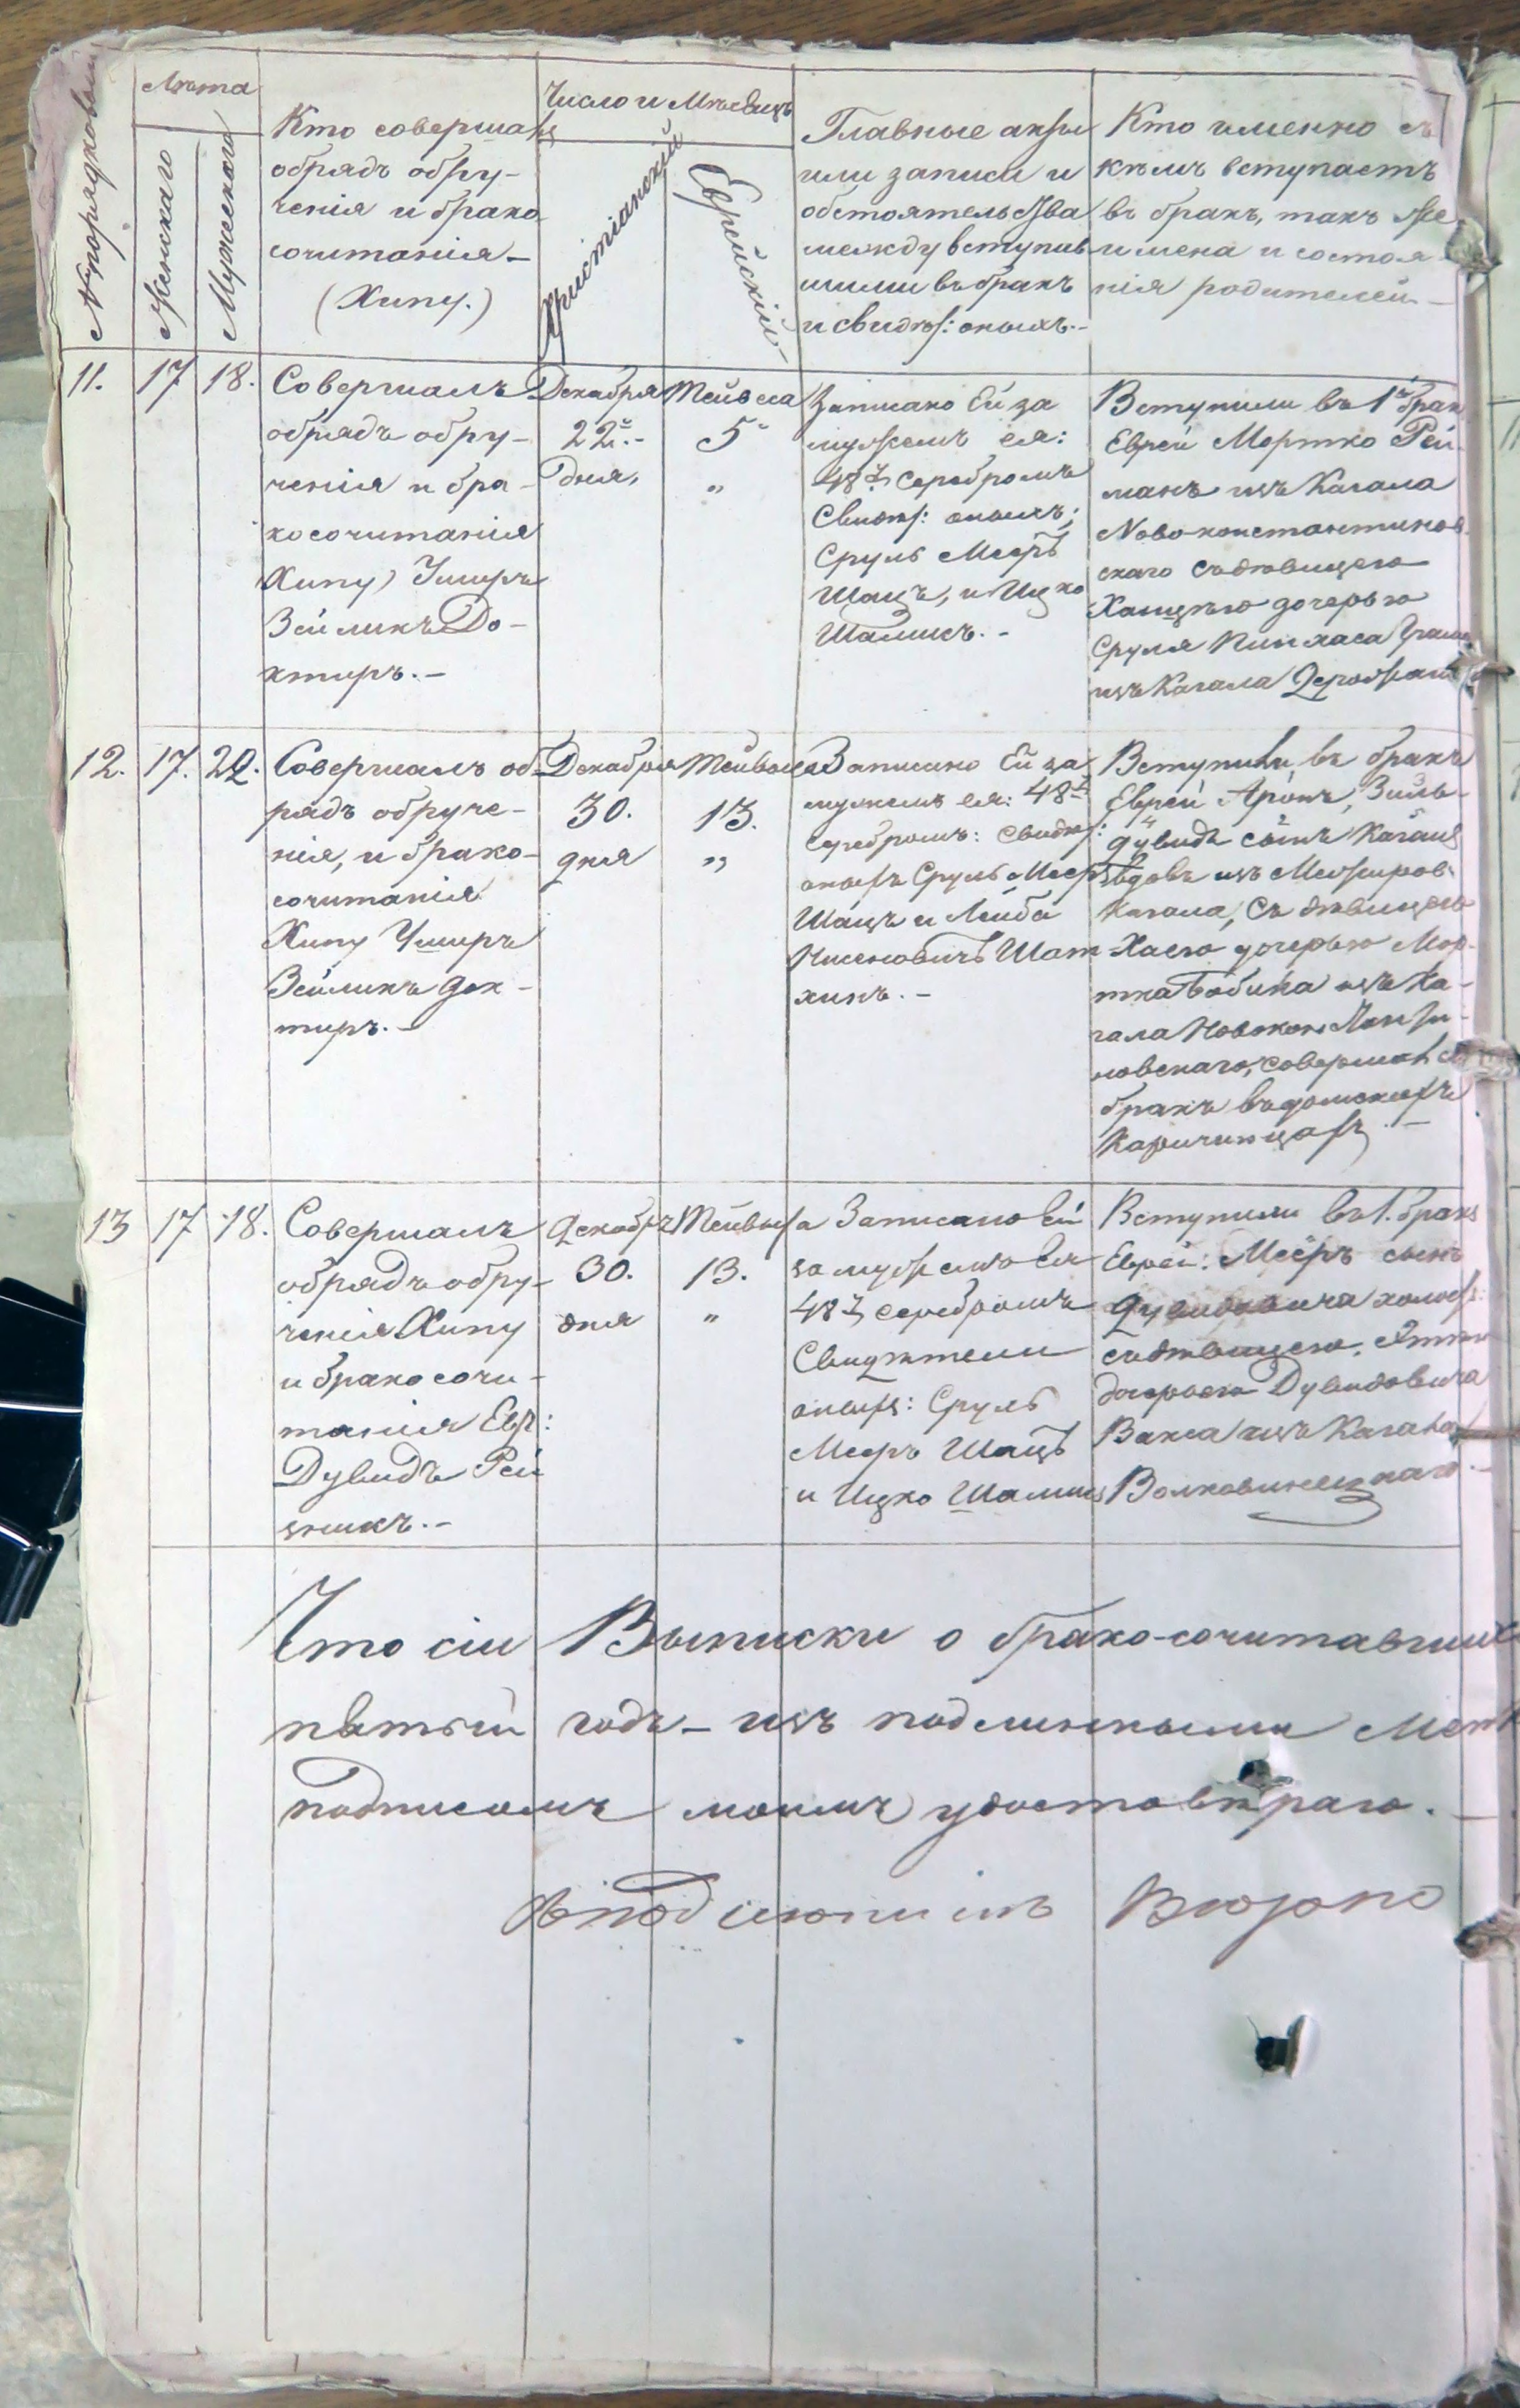 № порядковый
Лѣта
Женскаго
Мужескаго
Кто совершалъ
обрядъ обру-
ченія и брако
сочитанія –
(Хипу.)
Число и Мѣсяцъ
Христіанскій
Еврейскій –
Главные акты
или записи и
обстоятельства
между вступив
шими въ бракъ
и свидѣт: оныхъ. –
Кто именно съ
кѣмъ вступаетъ
въ бракъ, такъ же
имена и состоя
нія родителей –
11.
17
18.
Совершалъ
обрядъ обру-
ченія и бра-
косочитанія
Хипу) Ушеръ
Зейликъ До-
ктиръ. –
Декабря
22. –
дня,
Тейвеса
5
"
Записано Ей за
мужемъ ея:
48 серебромъ
Свидѣт: оныхъ:
Сруль Мееръ
Шацъ, и Ицко
Шамисъ. –
Вступили въ 1й брак
Еврей Мортко Рей
манъ изъ Кагала
Новоконстантинов
скаго съ дѣвицею
дочерью
Сруля Пинхаса
изъ Кагала
12.
17.
22.
Совершалъ об-
рядъ обруче-
нія, и брако-
сочитанія
Хипу Ушеръ
Зейликъ Док-
тиръ. –
Декабря
30.
дня
Тейвеса
13.
"
Записано Ей за
мужемъ ея: 48
серебромъ: Свидѣт:
оныхъ Сруль Мееръ
Шацъ и Лейба
Нисеновичъ Шат
хинъ. –
Вступили въ бракъ
Еврей Аронъ, Зись-
дувидъ сынъ
вдовъ изъ Межиров.
Кагала, съ дѣвицею
Хаею дочерью Мор-
тка Бабина изъ Ка-
гала Новоконстанти-
новскаго, совершалъ
бракъ въ
13
17
18.
Совершалъ
обрядъ обру-
ченія Хипу
и бракосочи-
танія Евр:
Дувидъ Рей
зникъ. –
Декабрь
30.
дня
Тейвыса
13.
"
Записано Ей
за мужемъ ея
48 серебромъ
Свидѣтели
оныхъ: Сруль
Мееръ Шацъ
и Ицко Шамисъ
Вступили въ 1. бракъ
Еврей: Меёръ сынъ
Дувидовича холост:
съ дѣвицею,
дочерью Дувидовича
Вакса изъ Кагала
Волковинецкаго. –
Что сіи Выписки о брако-сочитавшихс
пятый годъ – изъ подлинными Мет
подписомъ моимъ удостовѣраю. –